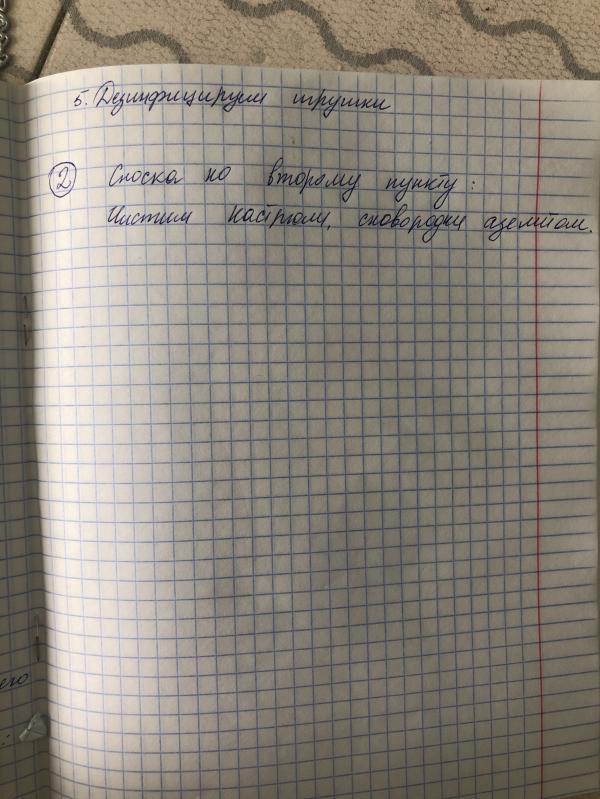 5. Дезинфицируем игрушки
② Сноска по второму пункту:
Чистим кастрюли, сковородки азелитом.
его